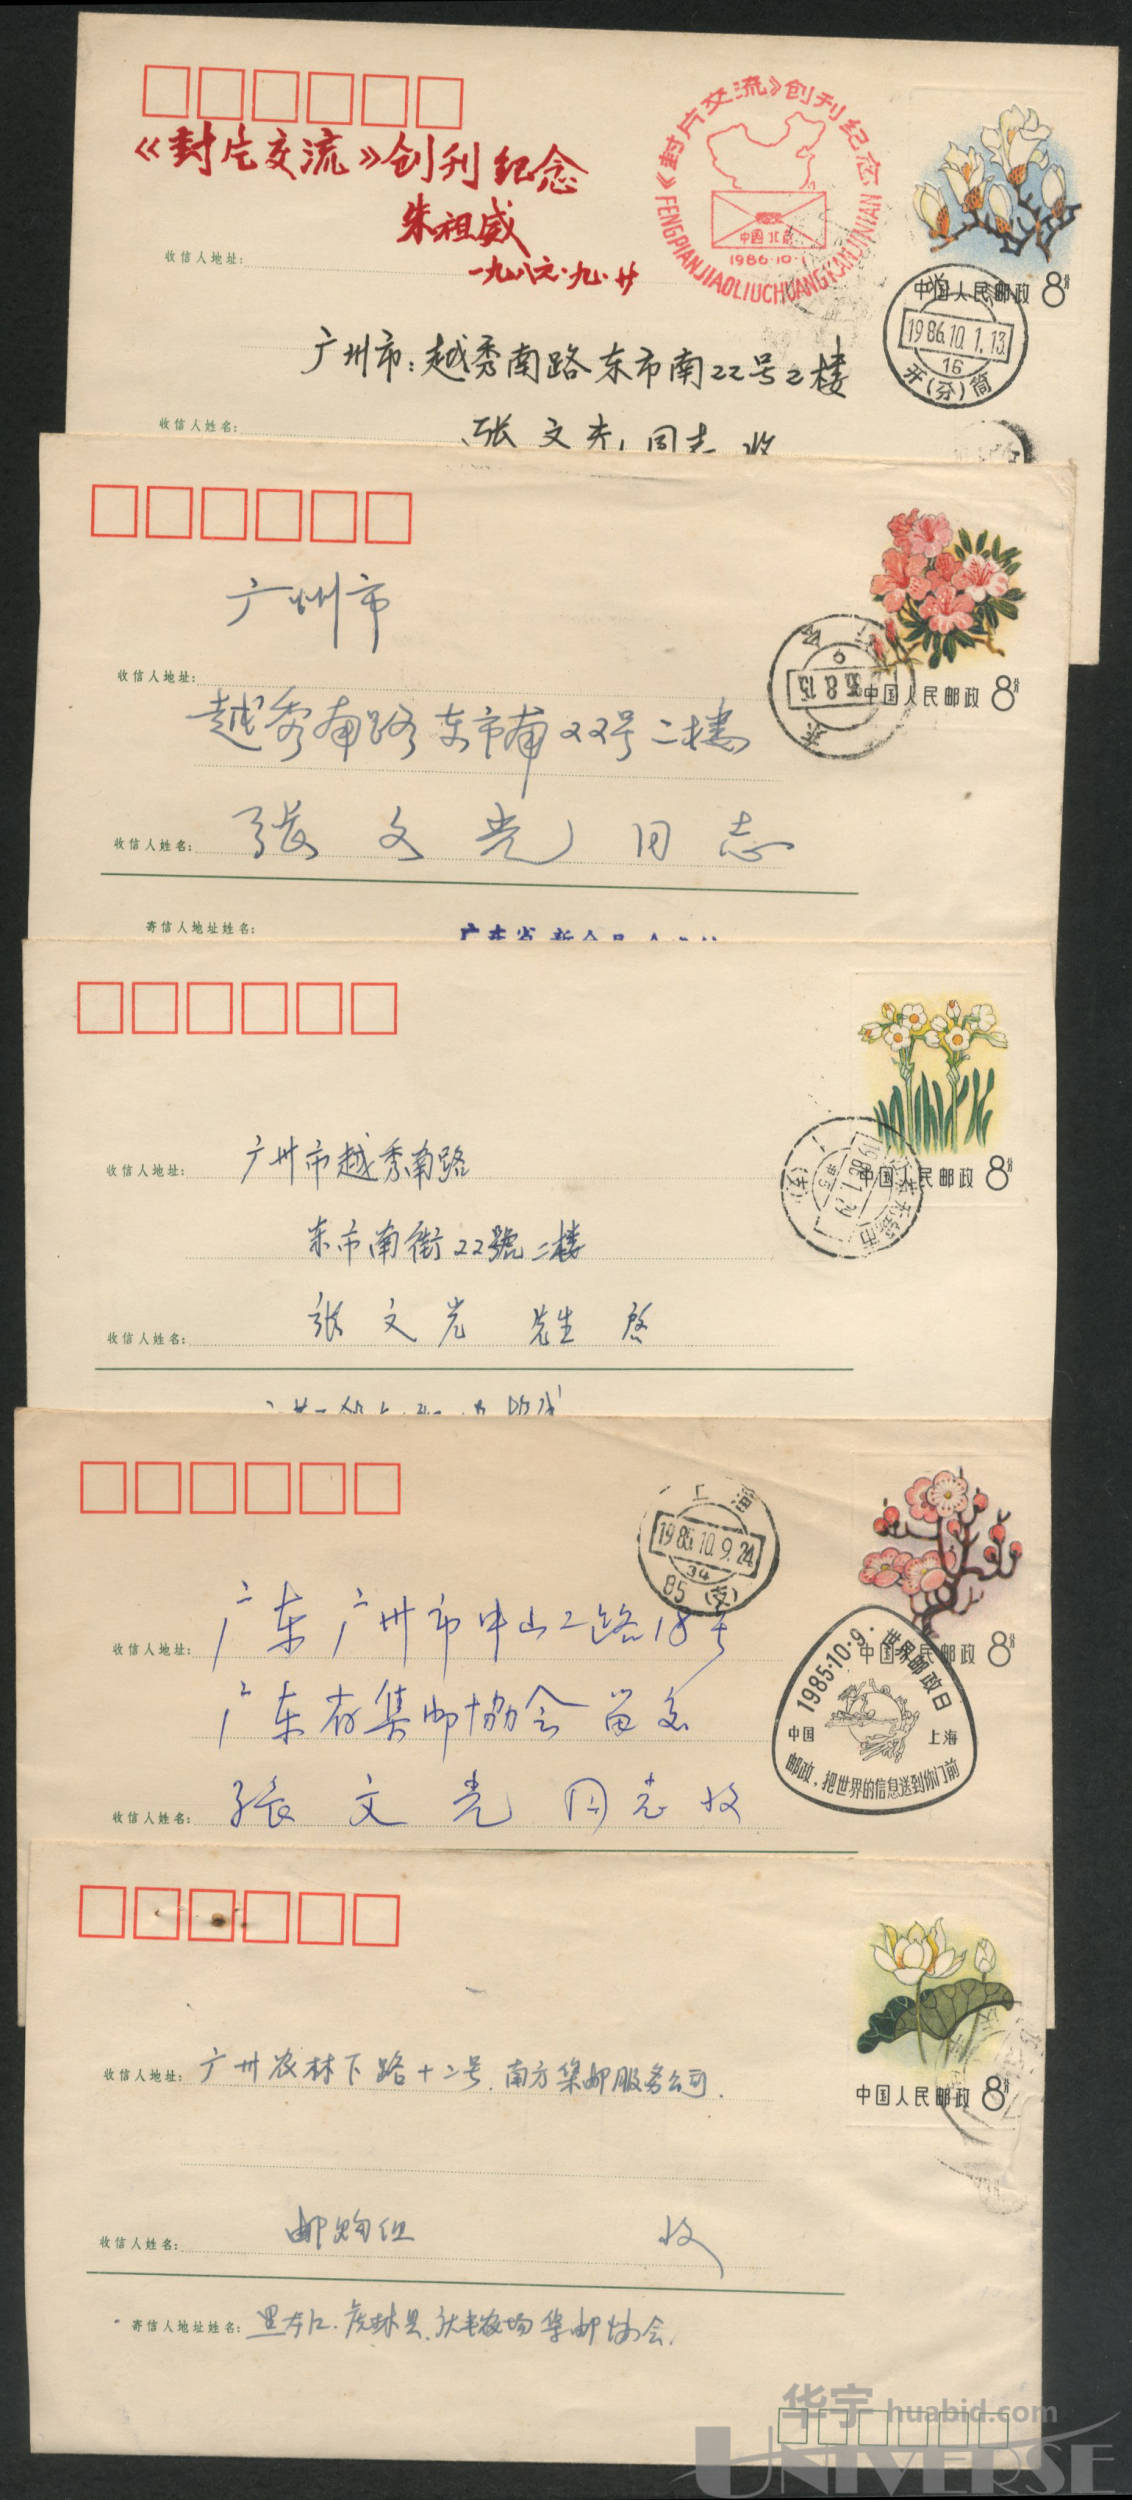 《封片交流》创刊纪念
朱祖威
一九八六·九·廿
《封片交流》创刊纪念
中国 北京
1986·10·1
FENGPIANJIAOLIUCHUANGKANJINIAN
中国人民邮政 8分
1986.10.1.13
16
开(分)筒
收信人地址:
广州市:越秀南路东市南22号2楼
收信人姓名:
张文光同志 收
广州市
中国人民邮政 8分
收信人地址:
越秀南路东市南22号二楼
收信人姓名:
张文光同志
寄信人地址姓名:
中国人民邮政 8分
收信人地址:
广州市越秀南路
东市南街22號二楼
收信人姓名:
张文光 先生 啓
上海
1985.10.9.24
34
85(支)
中国人民邮政 8分
收信人地址:
广东广州市中山二路18号
广东省集邮协会留交
收信人姓名:
张文光同志收
1985·10·9·世界邮政日
中国 上海
邮政,把世界的信息送到你门前
中国人民邮政 8分
收信人地址:
广州农林下路十二号.南方集邮服务公司.
收信人姓名:
邮购组 收
寄信人地址姓名:
集邮协会.
华宇 huabid.com
UNIVERSE